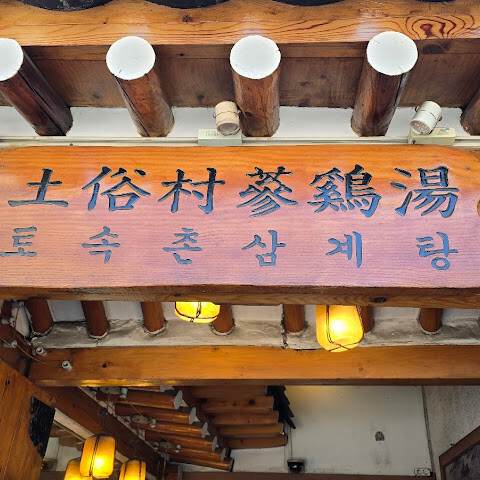 土俗村蔘鷄湯
토속촌삼계탕